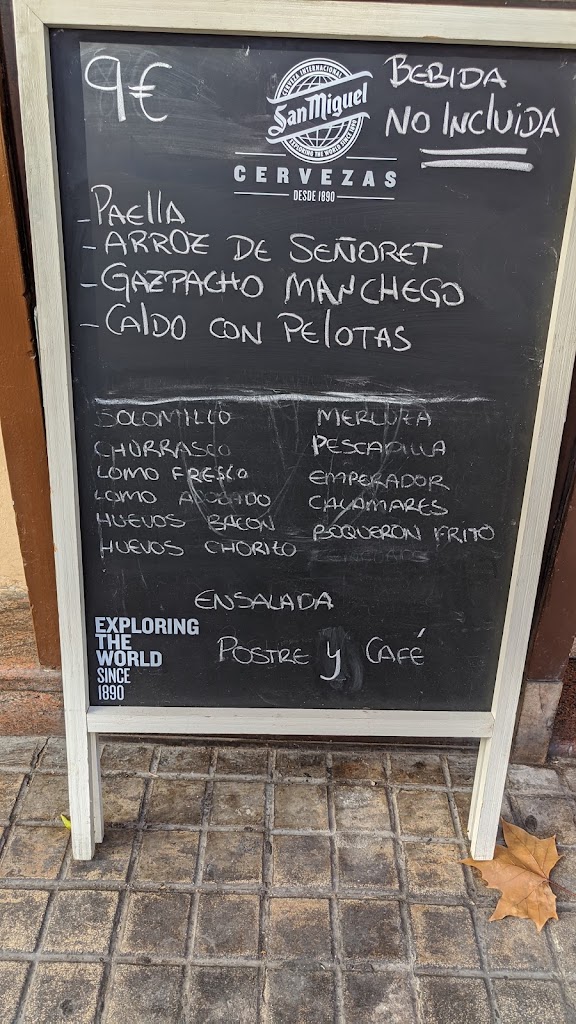 9€
CERVEZA INTERNACIONAL
San Miguel
EXPLORING THE WORLD SINCE 1890
CERVEZAS
DESDE 1890
BEBIDA
NO INCLUIDA
- PAELLA
- ARROZ DE SEÑORET
- GAZPACHO MANCHEGO
- CALDO CON PELOTAS
SOLOMILLO
CHURRASCO
LOMO FRESCO
LOMO ADOBADO
HUEVOS BACON
HUEVOS CHORIZO
MERLUZA
PESCADILLA
EMPERADOR
CALAMARES
BOQUERON FRITO
ENSALADA
EXPLORING
THE
WORLD
SINCE
1890
POSTRE y CAFÉ